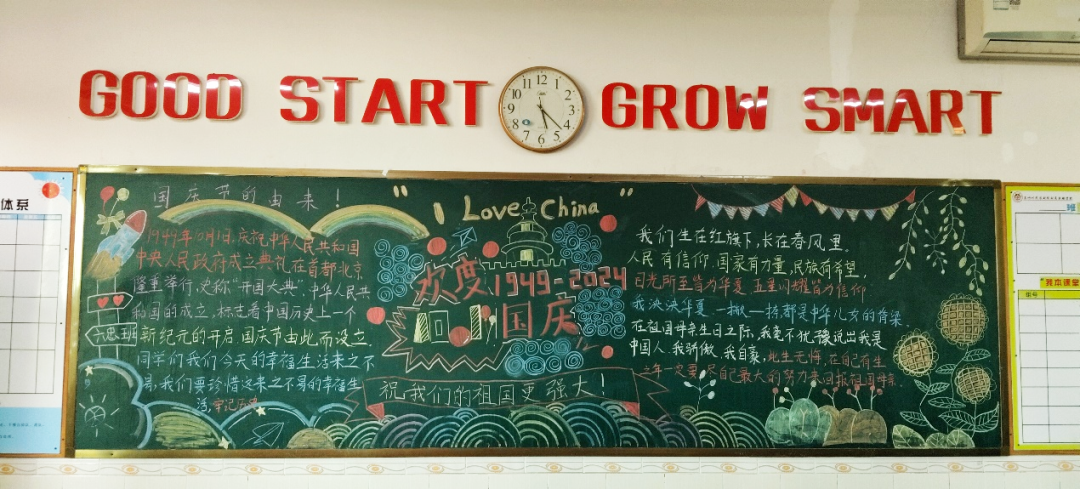 GOOD START GROW SMART
11 12 1
10 2
9 3
8 4
7 6 5
体系
班
国庆节的由来！
1949年10月1日，庆祝中华人民共和国
中央人民政府成立典礼在首都北京
隆重举行，史称“开国大典”中华人民共
和国的成立，标志着中国历史上一个
新纪元的开启.国庆节由此而设立.
同学们我们今天的幸福生活来之不
易，我们要珍惜这来之不易的幸福生
活，牢记历史
六 班
“ Love China ”
欢度 1949-2024
国庆
祝我们的祖国更强大！
我们生在红旗下，长在春风里.
人民有信仰，国家有力量，民族有希望，
目光所至皆为华夏 五星闪耀皆为信仰
我泱泱华夏 一撇一捺都是中华儿女的脊梁
在祖国母亲生日之际，我毫不犹豫说出我是
中国人.我骄傲，我自豪，此生无悔，在自己有生
之年一次要尽自己最大的努力来回报祖国母亲.